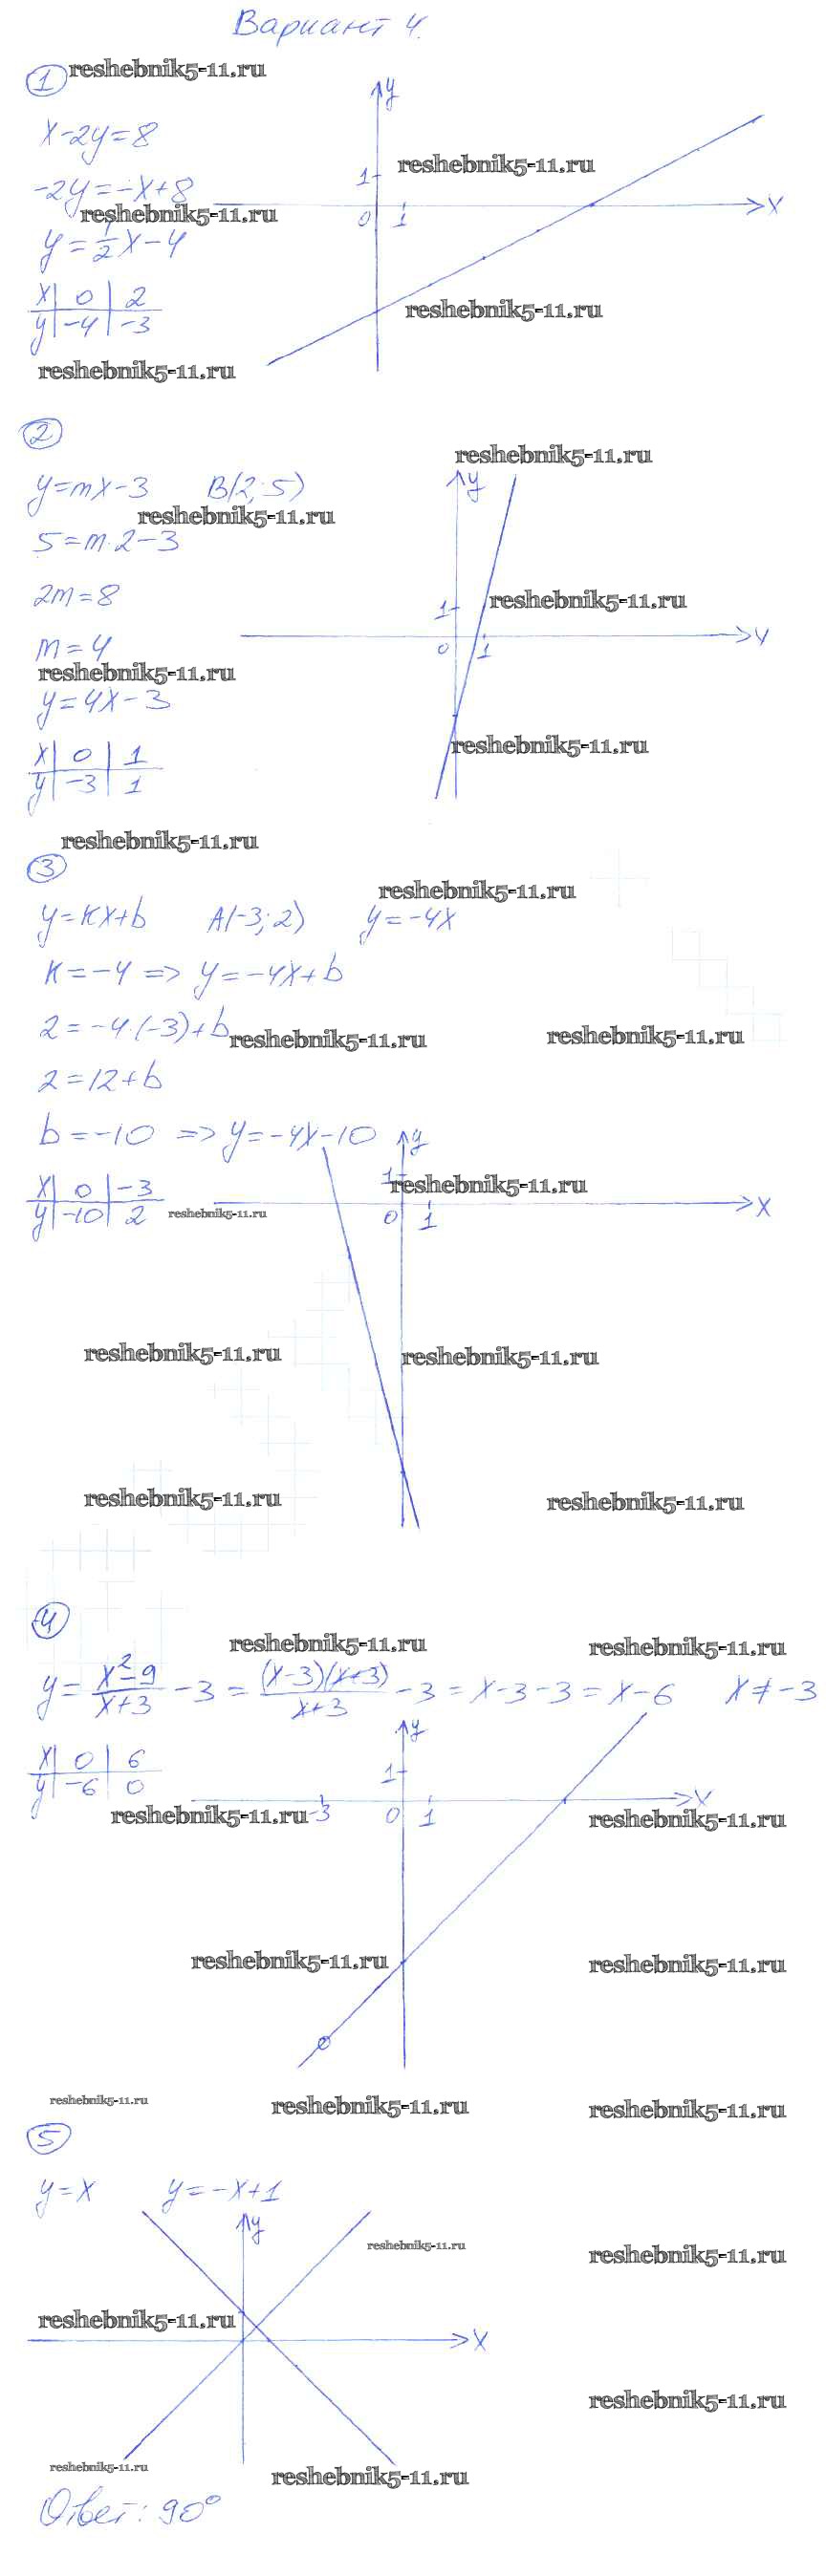 Вариант 4.
1 reshebnik5-11.ru
y
x-2y=8
reshebnik5-11.ru
1
-2y=-x+8
0 1 x
reshebnik5-11.ru
y=1/2x-4
x 0 2
y -4 -3
reshebnik5-11.ru
reshebnik5-11.ru
2
reshebnik5-11.ru
y=mx-3 B(2;5) y
reshebnik5-11.ru
5=m·2-3
2m=8
1 reshebnik5-11.ru
m=4
0 1 y
reshebnik5-11.ru
y=4x-3
reshebnik5-11.ru
x 0 1
y -3 1
reshebnik5-11.ru
3
reshebnik5-11.ru
y=kx+b A(-3;2) y=-4x
k=-4 => y=-4x+b
2=-4·(-3)+b
reshebnik5-11.ru reshebnik5-11.ru
2=12+b
b=-10 => y=-4x-10 y
1 reshebnik5-11.ru
x 0 -3
y -10 2
reshebnik5-11.ru 0 1 x
reshebnik5-11.ru reshebnik5-11.ru
reshebnik5-11.ru reshebnik5-11.ru
4
reshebnik5-11.ru reshebnik5-11.ru
y=x²-9/x+3 -3=(x-3)(x+3)/x+3 -3=x-3-3=x-6 x≠-3
y
x 0 6
y -6 0
1
x
reshebnik5-11.ru -3 0 1 reshebnik5-11.ru
reshebnik5-11.ru reshebnik5-11.ru
reshebnik5-11.ru reshebnik5-11.ru reshebnik5-11.ru
5
y=x y=-x+1
y
reshebnik5-11.ru reshebnik5-11.ru
reshebnik5-11.ru
x
reshebnik5-11.ru
reshebnik5-11.ru reshebnik5-11.ru
Ответ: 90°